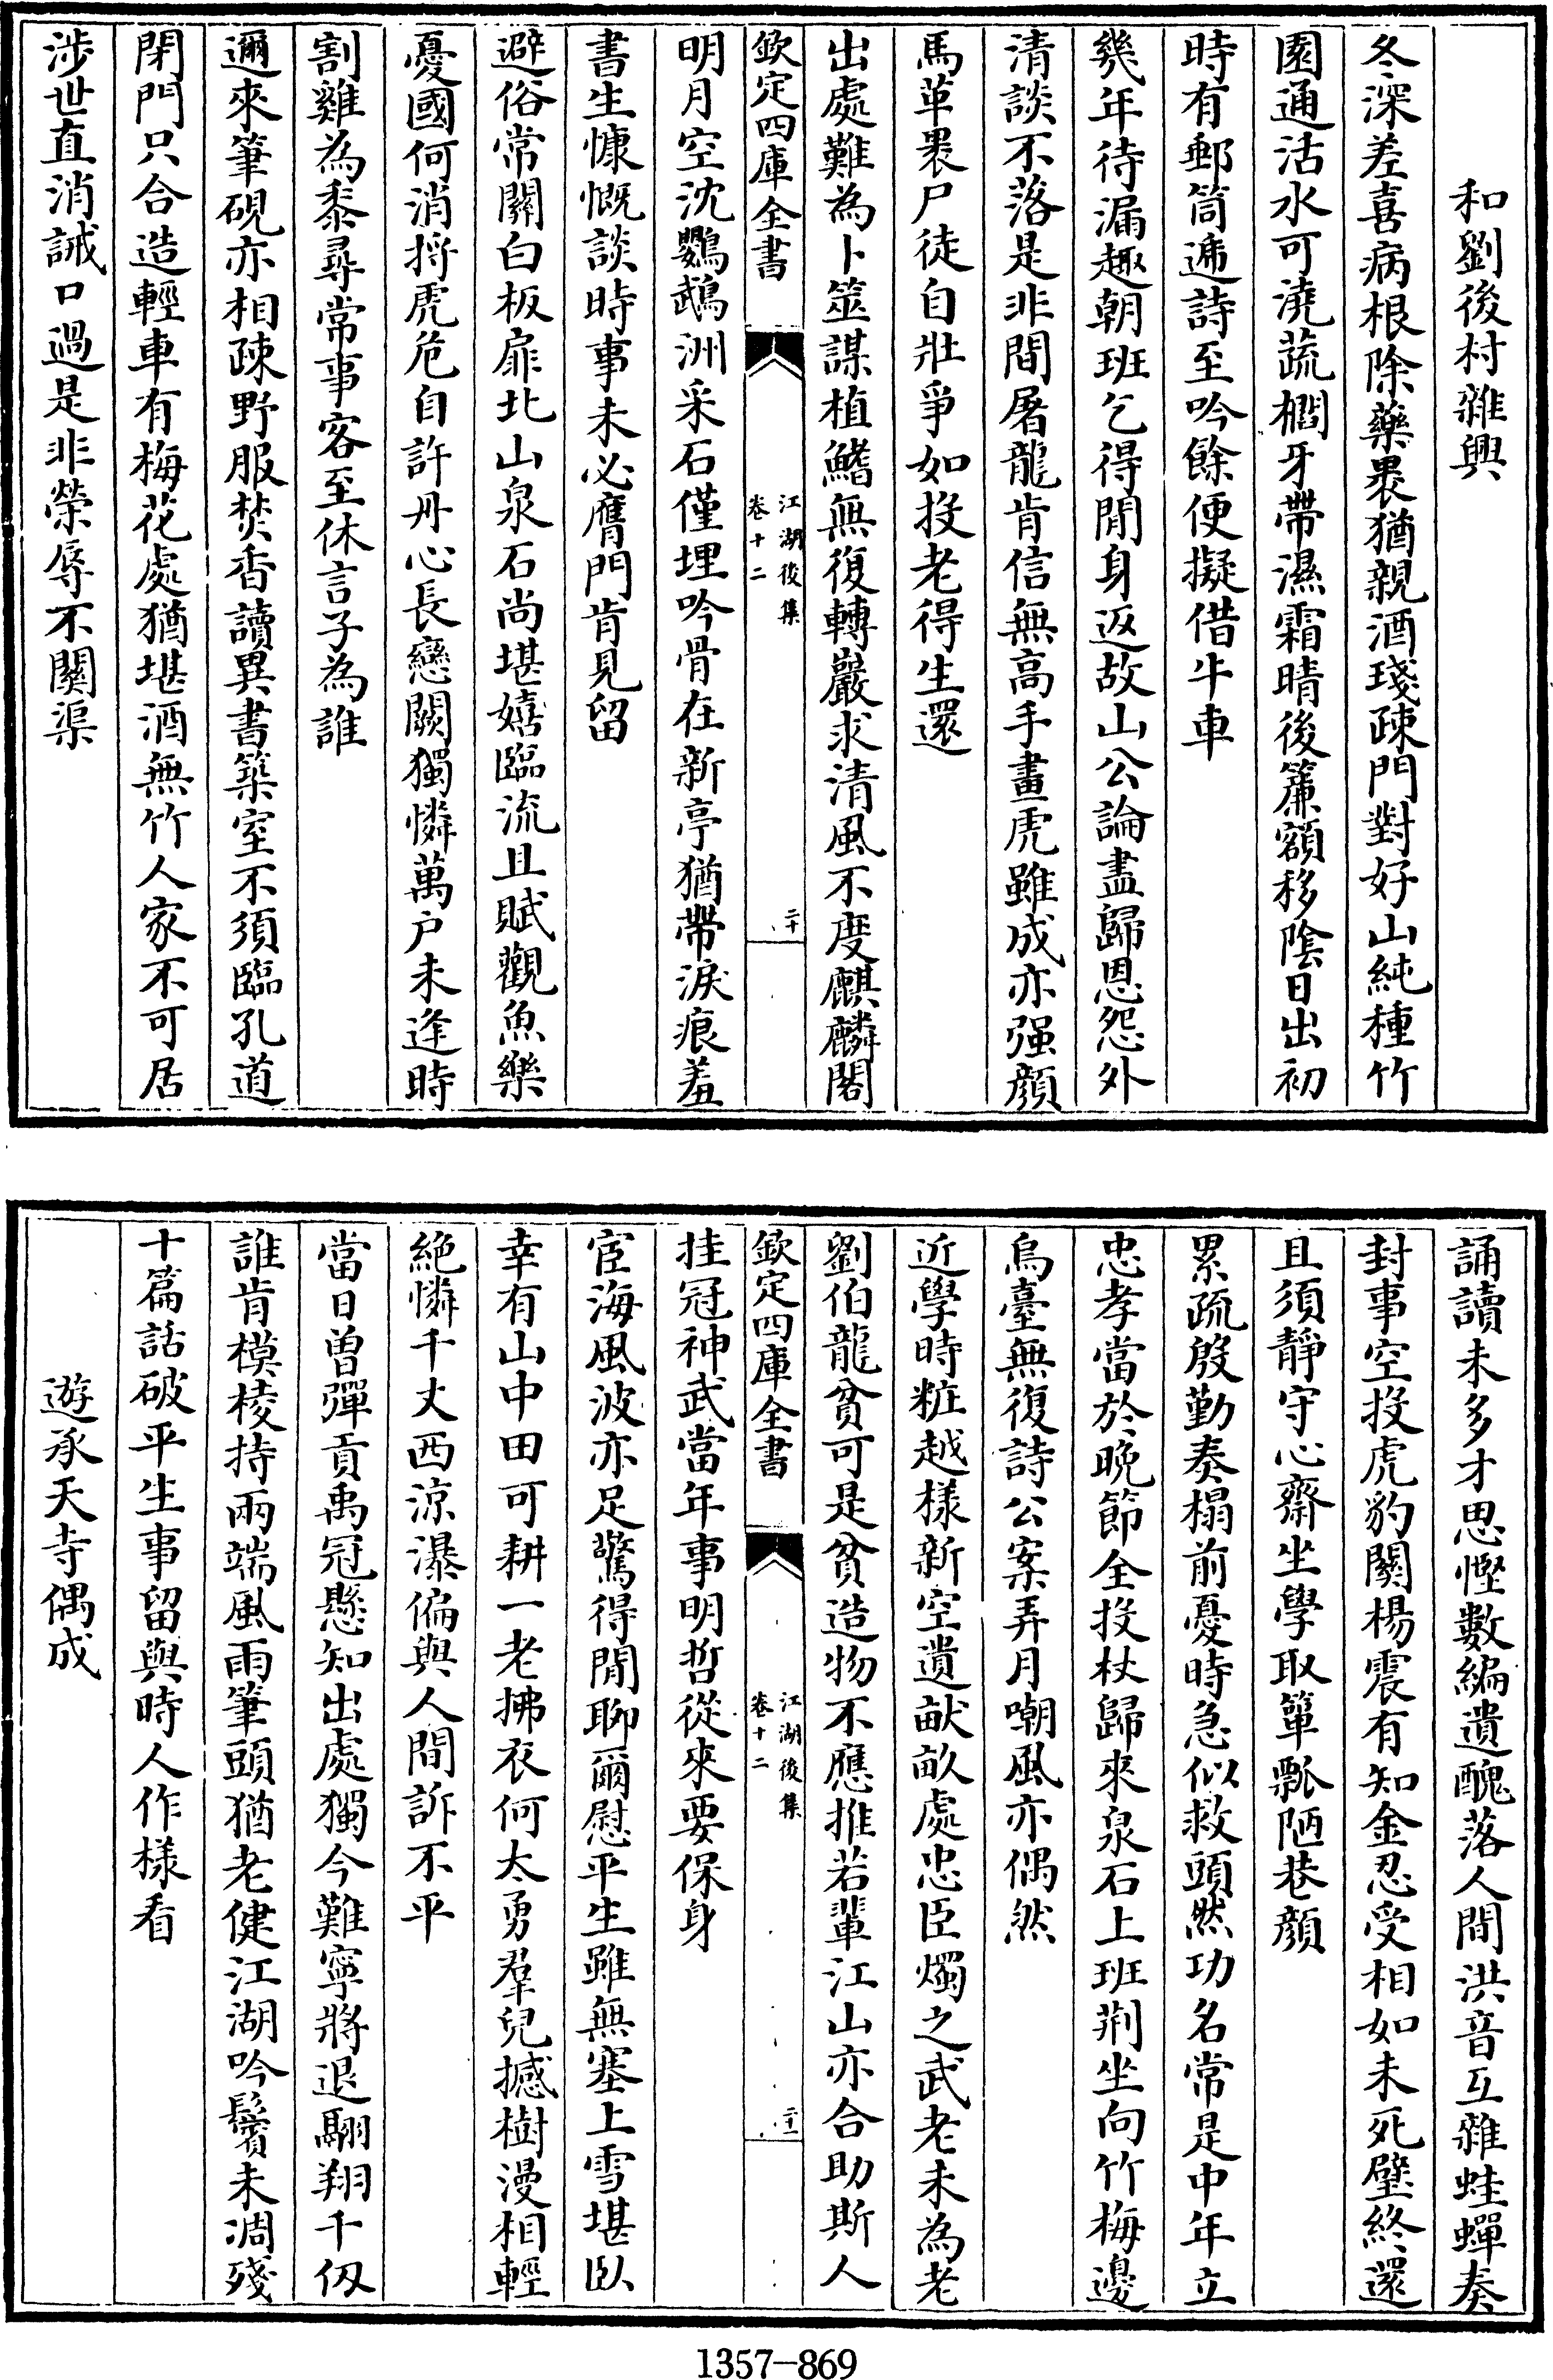 和劉後村雜興
冬深差喜病根除藥裹猶親酒琖疎門對好山純種竹
園通活水可澆蔬櫚牙帶濕霜晴後簾額移陰日出初
時有郵筒遞詩至吟餘便擬借牛車
幾年待漏趣朝班乞得閒身返故山公論盡歸恩怨外
清談不落是非間屠龍肯信無高手畫虎雖成亦强顔
馬革裹尸徒自壯爭如投老得生還
出處難為卜筮謀植鰭無復轉巖求清風不度麒麟閣
欽定四庫全書
江湖後集
卷十二
二十
明月空沈鸚鵡洲采石僅埋吟骨在新亭猶帶淚痕羞
書生慷慨談時事未必膺門肯見留
避俗常關白板扉北山泉石尚堪嬉臨流且賦觀魚樂
憂國何消捋虎危自許丹心長戀闕獨憐萬户未逢時
割雞為黍尋常事客至休言子為誰
邇來筆硯亦相疎野服焚香讀異書築室不須臨孔道
閉門只合造輕車有梅花處猶堪酒無竹人家不可居
涉世直消誡口過是非榮辱不關渠
誦讀未多才思慳數編遺醜落人間洪音互雜蛙蟬奏
封事空投虎豹關楊震有知金忍受相如未死璧終還
且須靜守心齋坐學取簞瓢陋巷顔
累疏殷勤奏榻前憂時急似救頭然功名常是中年立
忠孝當於晚節全投杖歸來泉石上班荆坐向竹梅邊
烏臺無復詩公案弄月嘲風亦偶然
近學時粧越樣新空遺畎畝處忠臣燭之武老未為老
劉伯龍貧可是貧造物不應推若輩江山亦合助斯人
欽定四庫全書
江湖後集
卷十二
二十一
挂冠神武當年事明哲從來要保身
宦海風波亦足驚得閒聊爾慰平生雖無塞上雪堪臥
幸有山中田可耕一老拂衣何太勇羣兒撼樹漫相輕
絶憐千丈西涼瀑偏與人間訴不平
當日曾彈貢禹冠懸知出處獨今難寧將退翮翔千仭
誰肯模棱持兩端風雨筆頭猶老健江湖吟鬢未凋殘
十篇話破平生事留與時人作様看
遊承天寺偶成
1357-869